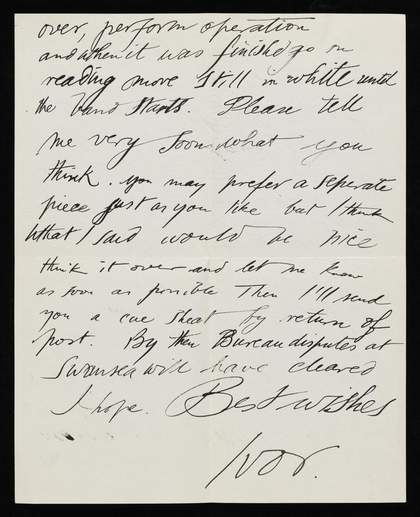 over, perform operation
and when it was finished go on
reading more still in white until
the band starts. Please tell
me very soon what you
think. you may prefer a seperate
piece just as you like but I think
what I said would be nice
think it over and let me know
as soon as possible Then I'll send
you a cue sheat by return of
post. By then Bureau disputes at
Swansea will have cleared
I hope. Best wishes
Ivor.